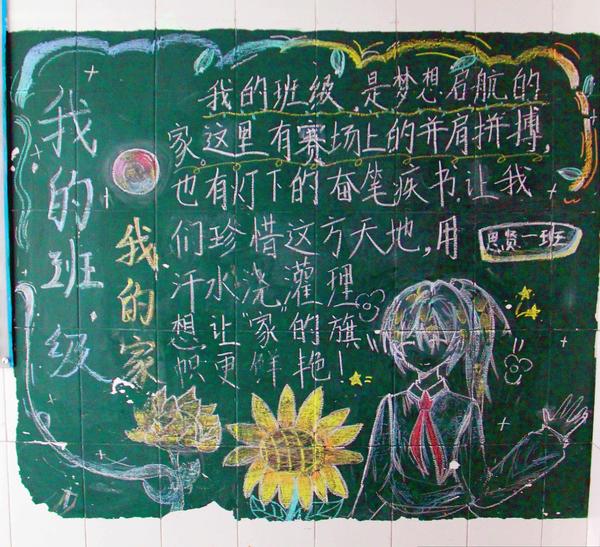 我的班级
我的家
我的班级,是梦想启航的
家。这里有赛场上的并肩拼搏,
也有灯下的奋笔疾书。让我
们珍惜这方天地,用
汗水浇灌理
想让"家"的旗
帜更鲜艳!
思贤一班